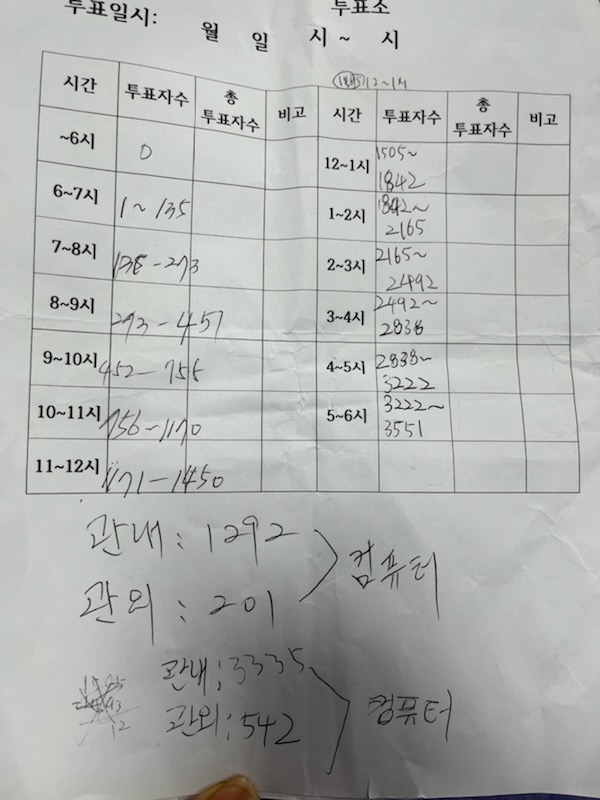 투표일시:
투표소
월 일 시 ~ 시
12~1시
시간 투표자수 총 투표자수 비고 시간 투표자수 총 투표자수 비고
~6시 0 12~1시 1505~ 1842
6~7시 1 ~ 135 1~2시 1842~ 2165
7~8시 135 - 293 2~3시 2165~ 2492
8~9시 293 - 451 3~4시 2492~ 2838
9~10시 452 - 756 4~5시 2838~ 3222
10~11시 756 - 1170 5~6시 3222~ 3551
11~12시 1171 - 1450
관내 : 1292
관외 : 201
컴퓨터
관내 : 3335
관외 : 542
컴퓨터